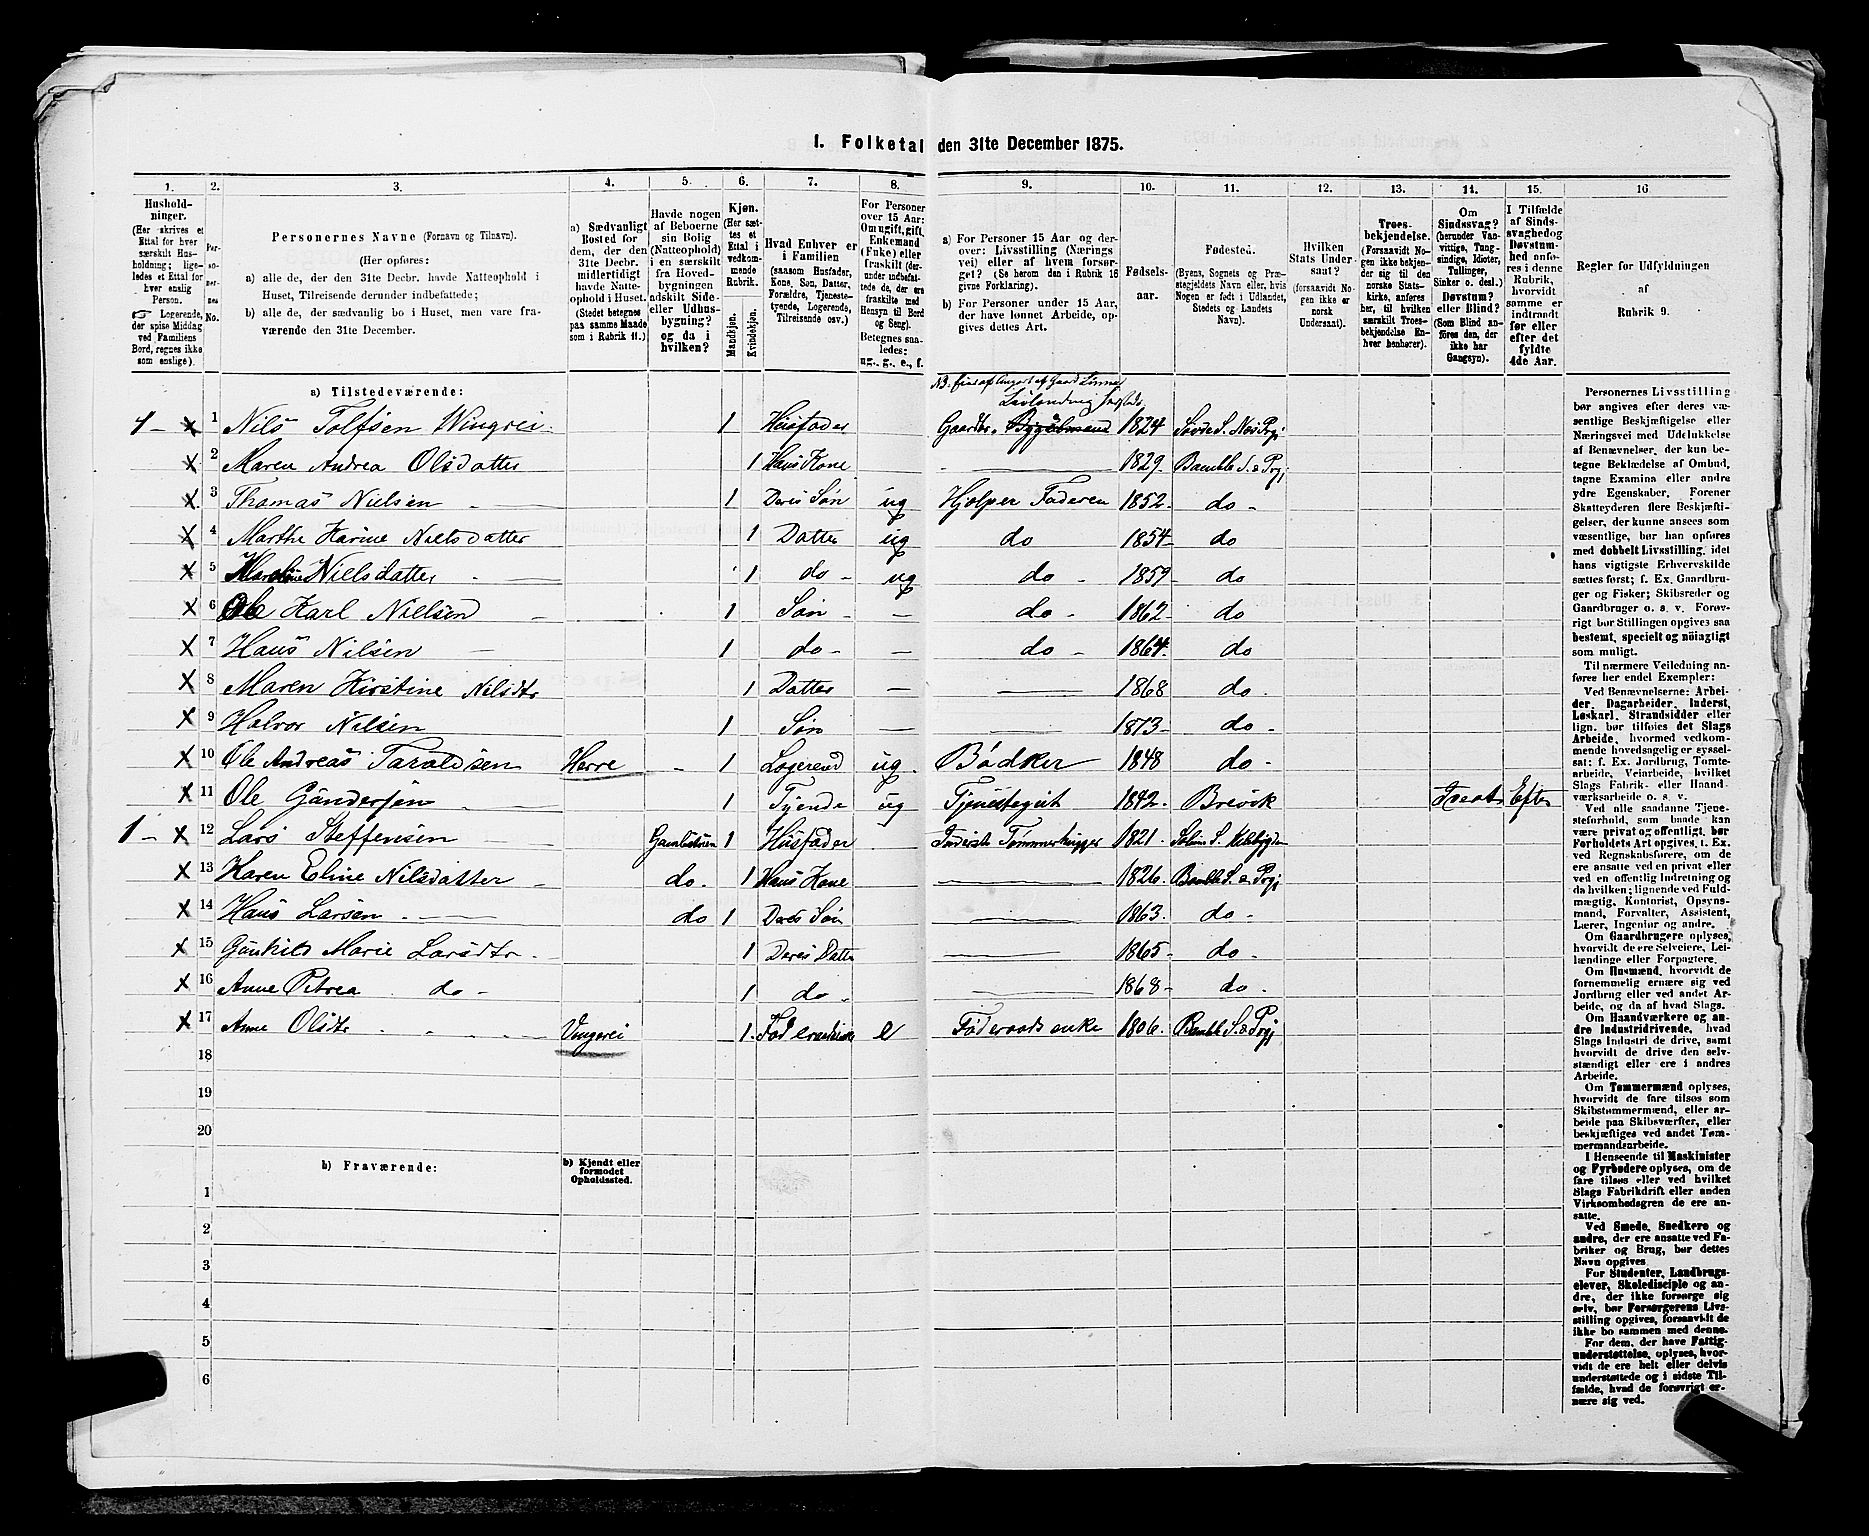 I. Folketal den 31te December 1875.
1. 2. 3. 4. 5. 6. 7. 8. 9. 10. 11. 12. 13. 14. 15. 16
Husholdninger.
(Her skrives et Ettal for hver særskilt Husholdning; ligeledes et Ettal for enslig Person.
☞ Logerende, der spise Middag ved Familiens Bord, regnes ikke som enslige).
Personernes No.
Personernes Navne (Fornavn og Tilnavn).
(Her opføres:
a) alle de, der den 31te Decbr. havde Natteophold i Huset, Tilreisende derunder indbefattede;
b) alle de, der sædvanlig bo i Huset, men vare fraværende den 31te December.
a) Sædvanligt Bosted for dem, der den 31te Decbr. midlertidigt havde Natteophold i Huset.
(Stedet betegnes paa samme Maade som i Rubrik 11.)
Havde nogen af Beboerne sin Bolig (Natteophold) i en særskilt fra Hovedbygningen adskilt Side- eller Udhusbygning? og da i hvilken?
Kjøn.
(Her sættes et Ettal i vedkommende Rubrik.
Mandkjøn.
Kvindekjøn.
Hvad Enhver er i Familien
(saasom Husfader, Kone, Søn, Datter, Forældre, Tjenestetyende, Logerende, Tilreisende osv.)
For Personer over 15 Aar: Om ugift, gift, Enkemand (Enke) eller fraskilt (derunder indbefattede de, der ere fraskilte med Hensyn til Bord og Seng).
Betegnes saaledes: ug., g., e., f.
a) For Personer 15 Aar og derover: Livsstilling (Næringsvei) eller af hvem forsørget? (Se herom den i Rubrik 16 givne Forklaring).
b) For Personer under 15 Aar, der have lønnet Arbeide, opgives dettes Art.
Fødselsaar.
Fødested.
(Byens, Sognets og Præstegjeldets Navn eller, hvis Nogen er født i Udlandet, Stedets og Landets Navn).
Hvilken Stats Undersaat?
(forsaavidt Nogen ikke er norsk Undersaat).
Troesbekjendelse.
(Forsaavidt Nogen ikke bekjender sig til den norske Statskirke, anføres her, til hvilken særskilt Troesbekjendelse Enhver henhører).
Om Sindssvag?
(herunder Vanvittige, Tungsindige, Idioter, Tullinger, Sinker o. desl.)
Døvstum? eller Blind?
(Som Blind anføres den, der ikke har Gangsyn).
I Tilfælde af Sindssvaghed og Døvstumhed anføres i denne Rubrik, hvorvidt samme er indtraadt før eller efter det fyldte 4de Aar.
Regler for Udfyldningen af Rubrik 9.
a) Tilstedeværende:
1 - x 1 Nils Tolfsen Wingrei. 1 Husfader Gaardbr. 1824 Næs Prgj
x 2 Maren Andrea Olsdatter 1 Hans Kone - 1829. Bamble S. & Prgj
x 3 Thomas Nielsen 1 Deres Søn ug Hjelper Faderen 1852. do -
x 4 Marthe Karine Nielsdatter 1 Datter ug do 1854 - do
x 5 Nielsdatter 1 do - ug do - 1859 - do
x 6 Ole Karl Nielsen 1 Søn - do - 1862 - do
x 7 Hans Nilsen 1 do - - do - 1864. do
x 8 Maren Kirstine Nilsdtr 1 Datter - 1868 do -
x 9 Halvor Nilsen 1 Søn - 1873 - do -
x 10 Ole Andreas Taraldsen Herre - 1 Logerend ug - Bødker 1848 do -
x 11 Ole Gundersen 1 Tyende ug Tjenestegut 1842 - Brevik Efter
1 - x 12 Lars Steffensen 1 Husfader Inderst Tømmerhugger 1821.
x 13 Karen Eline Nilsdatter do. 1 Hans Kone 1826. Bamble S. & Prgj
x 14 Hans Larsen do 1 Deres Søn 1863. do -
x 15 Gunhild Marie Larsdtr. 1 Deres Datter 1865 - do -
x 16 Anne Petrea do - 1 do - 1868 - do -
x 17 Anne Olsdtr Vingrei 1 e Føderaads enke 1806. Bamble S. & Prgj
18
19
20
b) Fraværende:
b) Kjendt eller formodet Opholdssted.
1
2
3
4
5
6
Personernes Livsstilling bør angives efter deres væsentlige Beskjæftigelse eller Næringsvei med Udelukkelse af Benævnelser, der kun betegne Beklædelse af Ombud, tagne Examina eller andre ydre Egenskaber. Forener Skatteyderen flere Beskjæftigelser, der kunne ansees som væsentlige, bør han opføres med dobbelt Livsstilling, idet hans vigtigste Erhvervskilde sættes først; f. Ex. Gaardbruger og Fisker; Skibsreder og Gaardbruger o. s. v. Forøvrigt bør Stillingen opgives saa bestemt, specielt og nöiagtigt som muligt.
Til nærmere Veiledning anføres her endel Exempler:
Ved Benævnelserne: Arbeider, Dagarbeider, Inderst, Løskarl, Strandsidder eller lign. bør tilføies det Slags Arbeide, hvormed vedkommende hovedsagelig er sysselsat: f. Ex. Jordbrug, Tomtearbeide, Veiarbeide, hvilket Slags Fabrik- eller Haandværksarbeide o. s. v.
Ved alle saadanne Tjenesteforhold, som baade kan være privat og offentligt, bør Forholdets Art opgives, t. Ex. ved Regnskabsførere, om de ere ansatte ved en privat eller ved en offentlig Indretning og da hvilken; lignende ved Fuldmægtig, Kontorist, Opsynsmand, Forvalter, Assistent, Lærer, Ingeniør og andre.
Om Gaardbrugere oplyses, hvorvidt de ere Selveiere, Leilændinge eller Forpagtere.
Om Husmænd, hvorvidt de fornemmelig ernære sig ved Jordbrug eller ved andet Arbeide, og da af hvad Slags.
Om Haandværkere og andre Industridrivende, hvad Slags Industri de drive, samt hvorvidt de drive den selvstændigt eller ere i andres Arbeide.
Om Tømmermænd oplyses, hvorvidt de fare tilsøs som Skibstømmermænd, eller arbeide paa Skibsværfter, eller beskjæftiges ved andet Tømmermandsarbeide.
I Henseende til Maskinister og Fyrbødere oplyses, om de fare tilsøs eller ved hvilket Slags Fabrikdrift eller anden Virksomhedsgren de ere ansatte.
Ved Smede, Snedkere og andre, der ere ansatte ved Fabriker og Brug, bør dettes Navn opgives.
For Studenter, Landbrugselever, Skoledisciple og andre, der ikke forsørge sig selv, bør Forsørgerens Livsstilling opgives, forsaavidt de ikke bo sammen med denne.
For dem, der have Fattigunderstøttelse, oplyses, hvorvidt de ere helt eller delvis understøttede og i sidste Tilfælde, hvad de forøvrigt ernære sig ved.